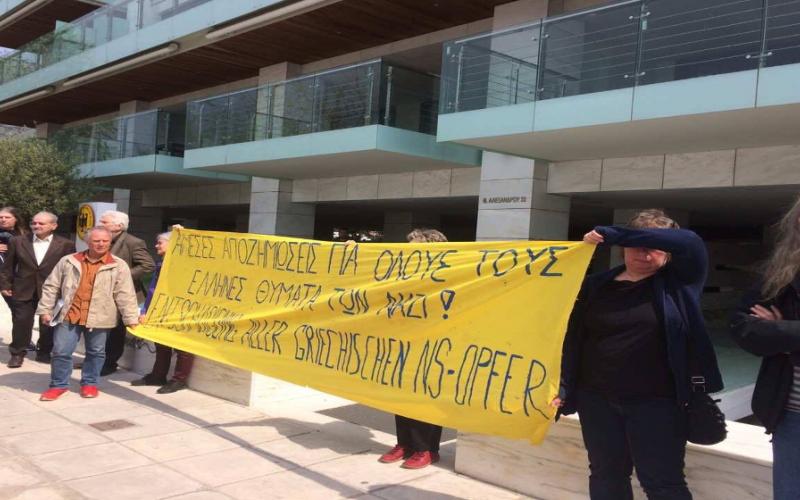 ΑΜΕΣΕΣ ΑΠΟΖΗΜΙΩΣΕΙΣ ΓΙΑ ΟΛΟΥΣ ΤΟΥΣ
ΕΛΛΗΝΕΣ ΘΥΜΑΤΑ ΤΩΝ ΝΑΖΙ!
ENTSCHÄDIGUNG ALLER GRIECHISCHEN NS-OPFER
Μ. ΑΛΕΞΑΝΔΡΟΥ 33